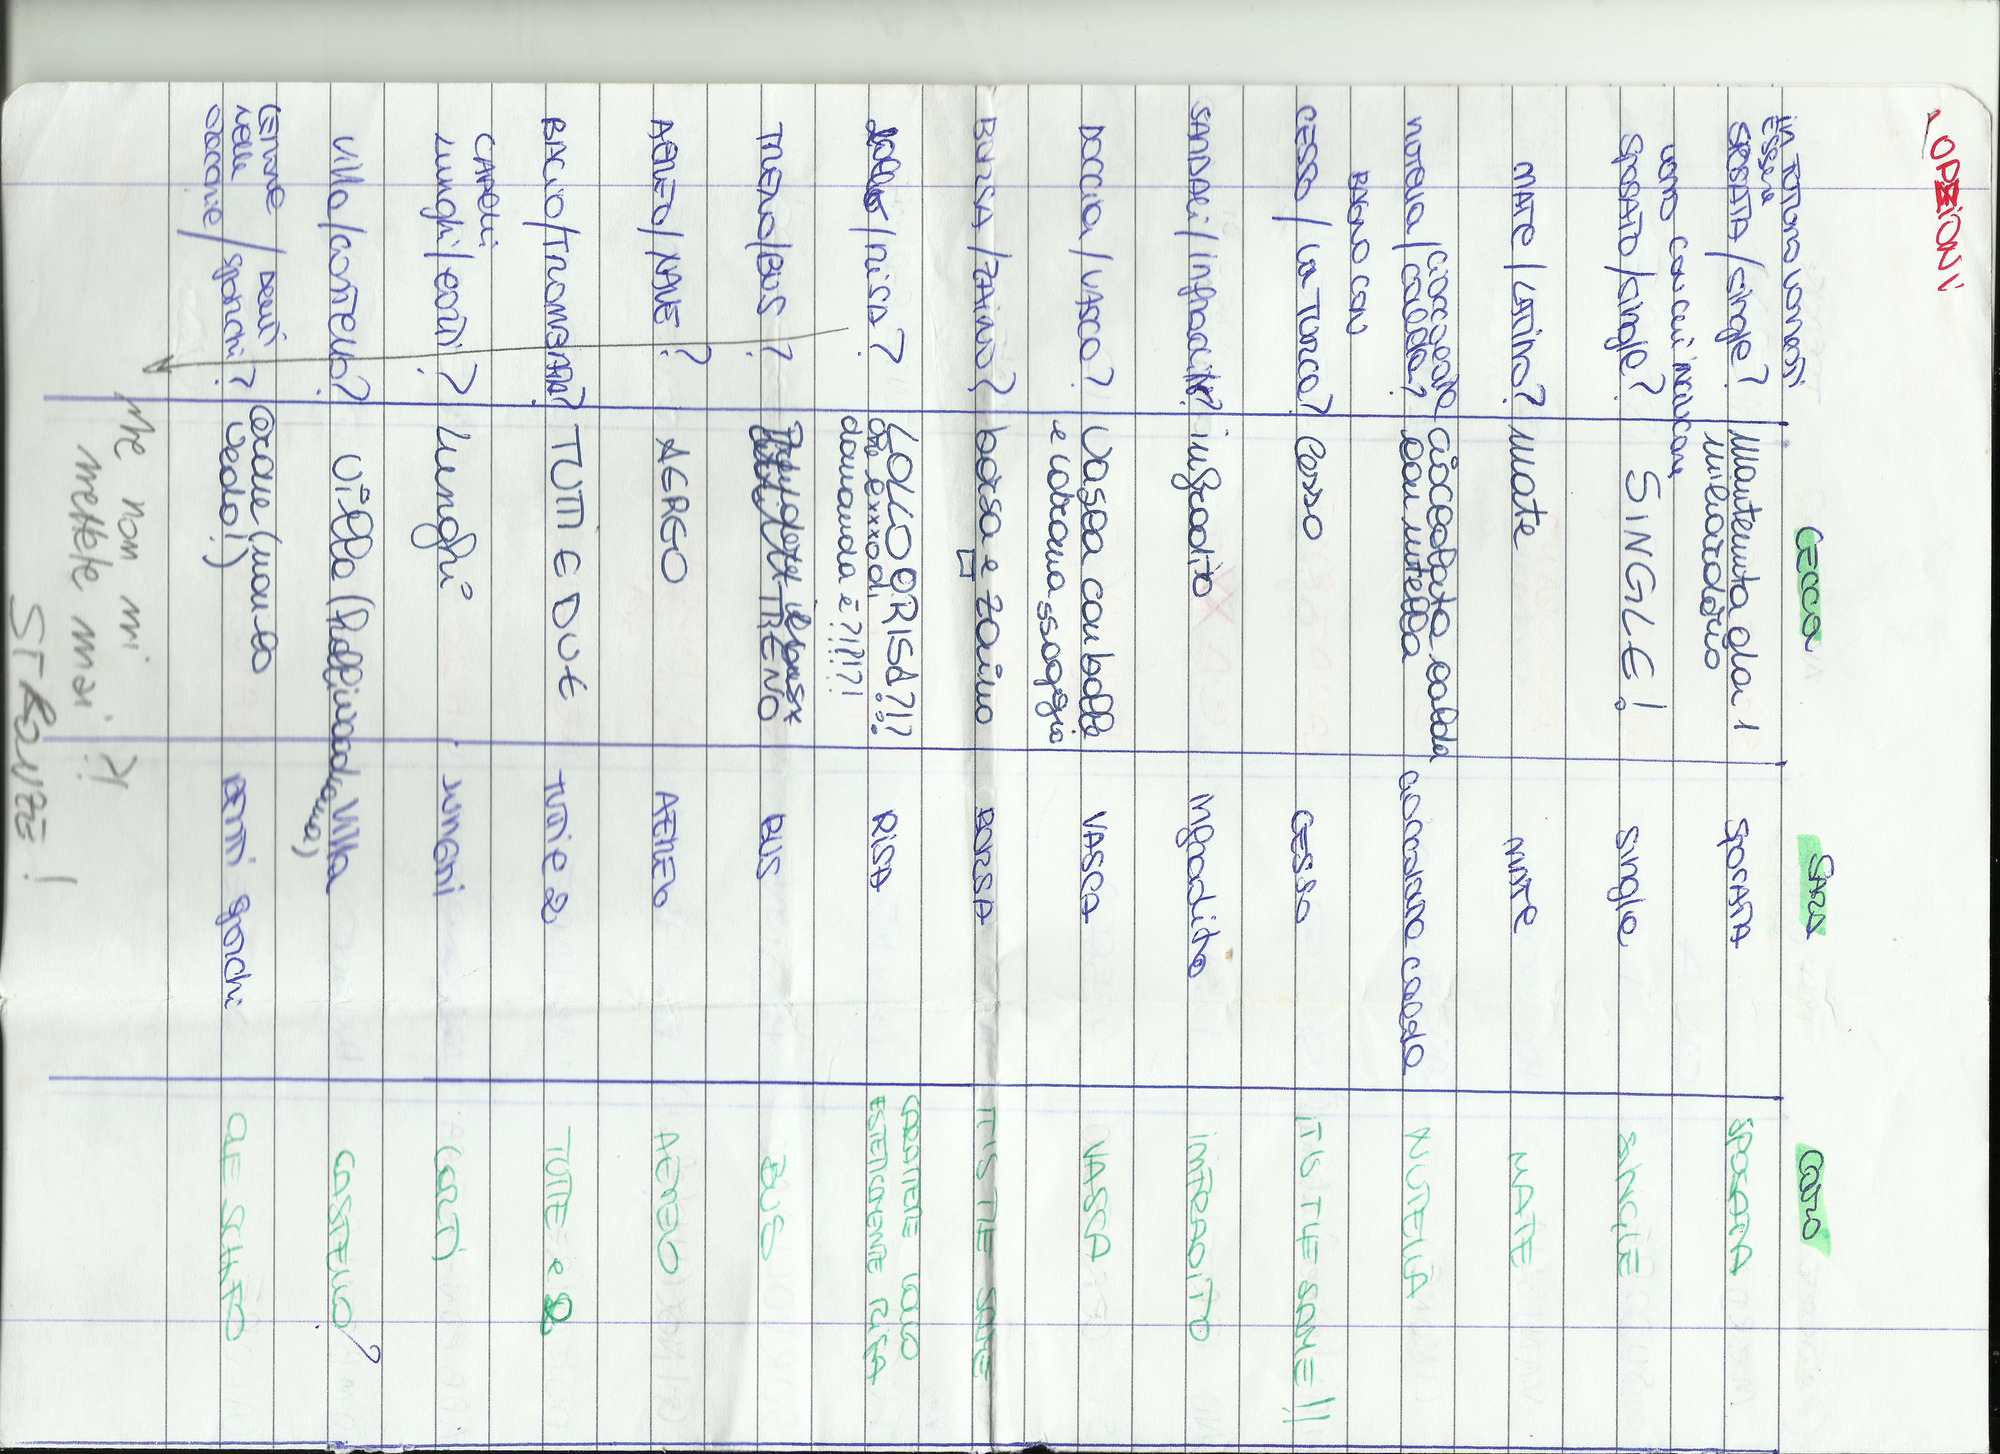 OPZIONI
Cecca
Sara
Caro
in FUTURO vorresti
essere
SPOSATA / single?
Mantenuta da 1
miliardario
SPOSATA
SPOSATA
uomo con cui
SPOSATO / single?
SINGLE!
single
SINGLE
MATE / LATINO?
mate
MATE
MATE
nutella / cioccolata
calda?
cioccolata calda
con nutella
cioccolata calda
NUTELLA
BAGNO CON
CESSO / la TURCA?
Cesso
CESSO
IT IS THE SAME!!
SANDALI / infradito?
infradito
infradito
INFRADITO
DOCCIA / VASCA?
Vasca con bolle
e idromassaggio
VASCA
VASCA
BORSA / ZAINO?
borsa e zaino
BORSA
IT IS THE SAME
lollo / RISA?
LOLLO O RISA?!?
che
domanda è?!?!?!
RISA
CARATTERE LOLLO
ESTETICAMENTE RISA
TRENO / BUS?
TRENO
BUS
BUS
AEREO / NAVE?
AEREO
AEREO
AEREO
BACIO / TROMBATA?
TUTTI E DUE
TUTTI e 2
TUTTE e 2
CAPELLI
lunghi / corti?
Lunghi
LUNGHI
CORTI
Villa / castello?
Villa (hollywoodiana)
Villa
CASTELLO?
CERUME / DENTI
nelle
orecchie / sporchi?
Cerume (non lo
vedo!)
DENTI sporchi
CHE SCHIFO
Me non mi
mettete mai?!
STRONZE!